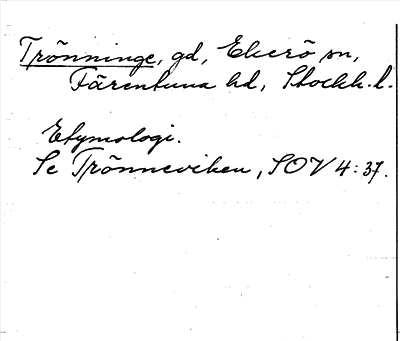 Trönninge, gd, Ekerö sn,
Färentuna hd, Stockh. l.
Etymologi.
Se Trönneviken, SOV 4: 37.